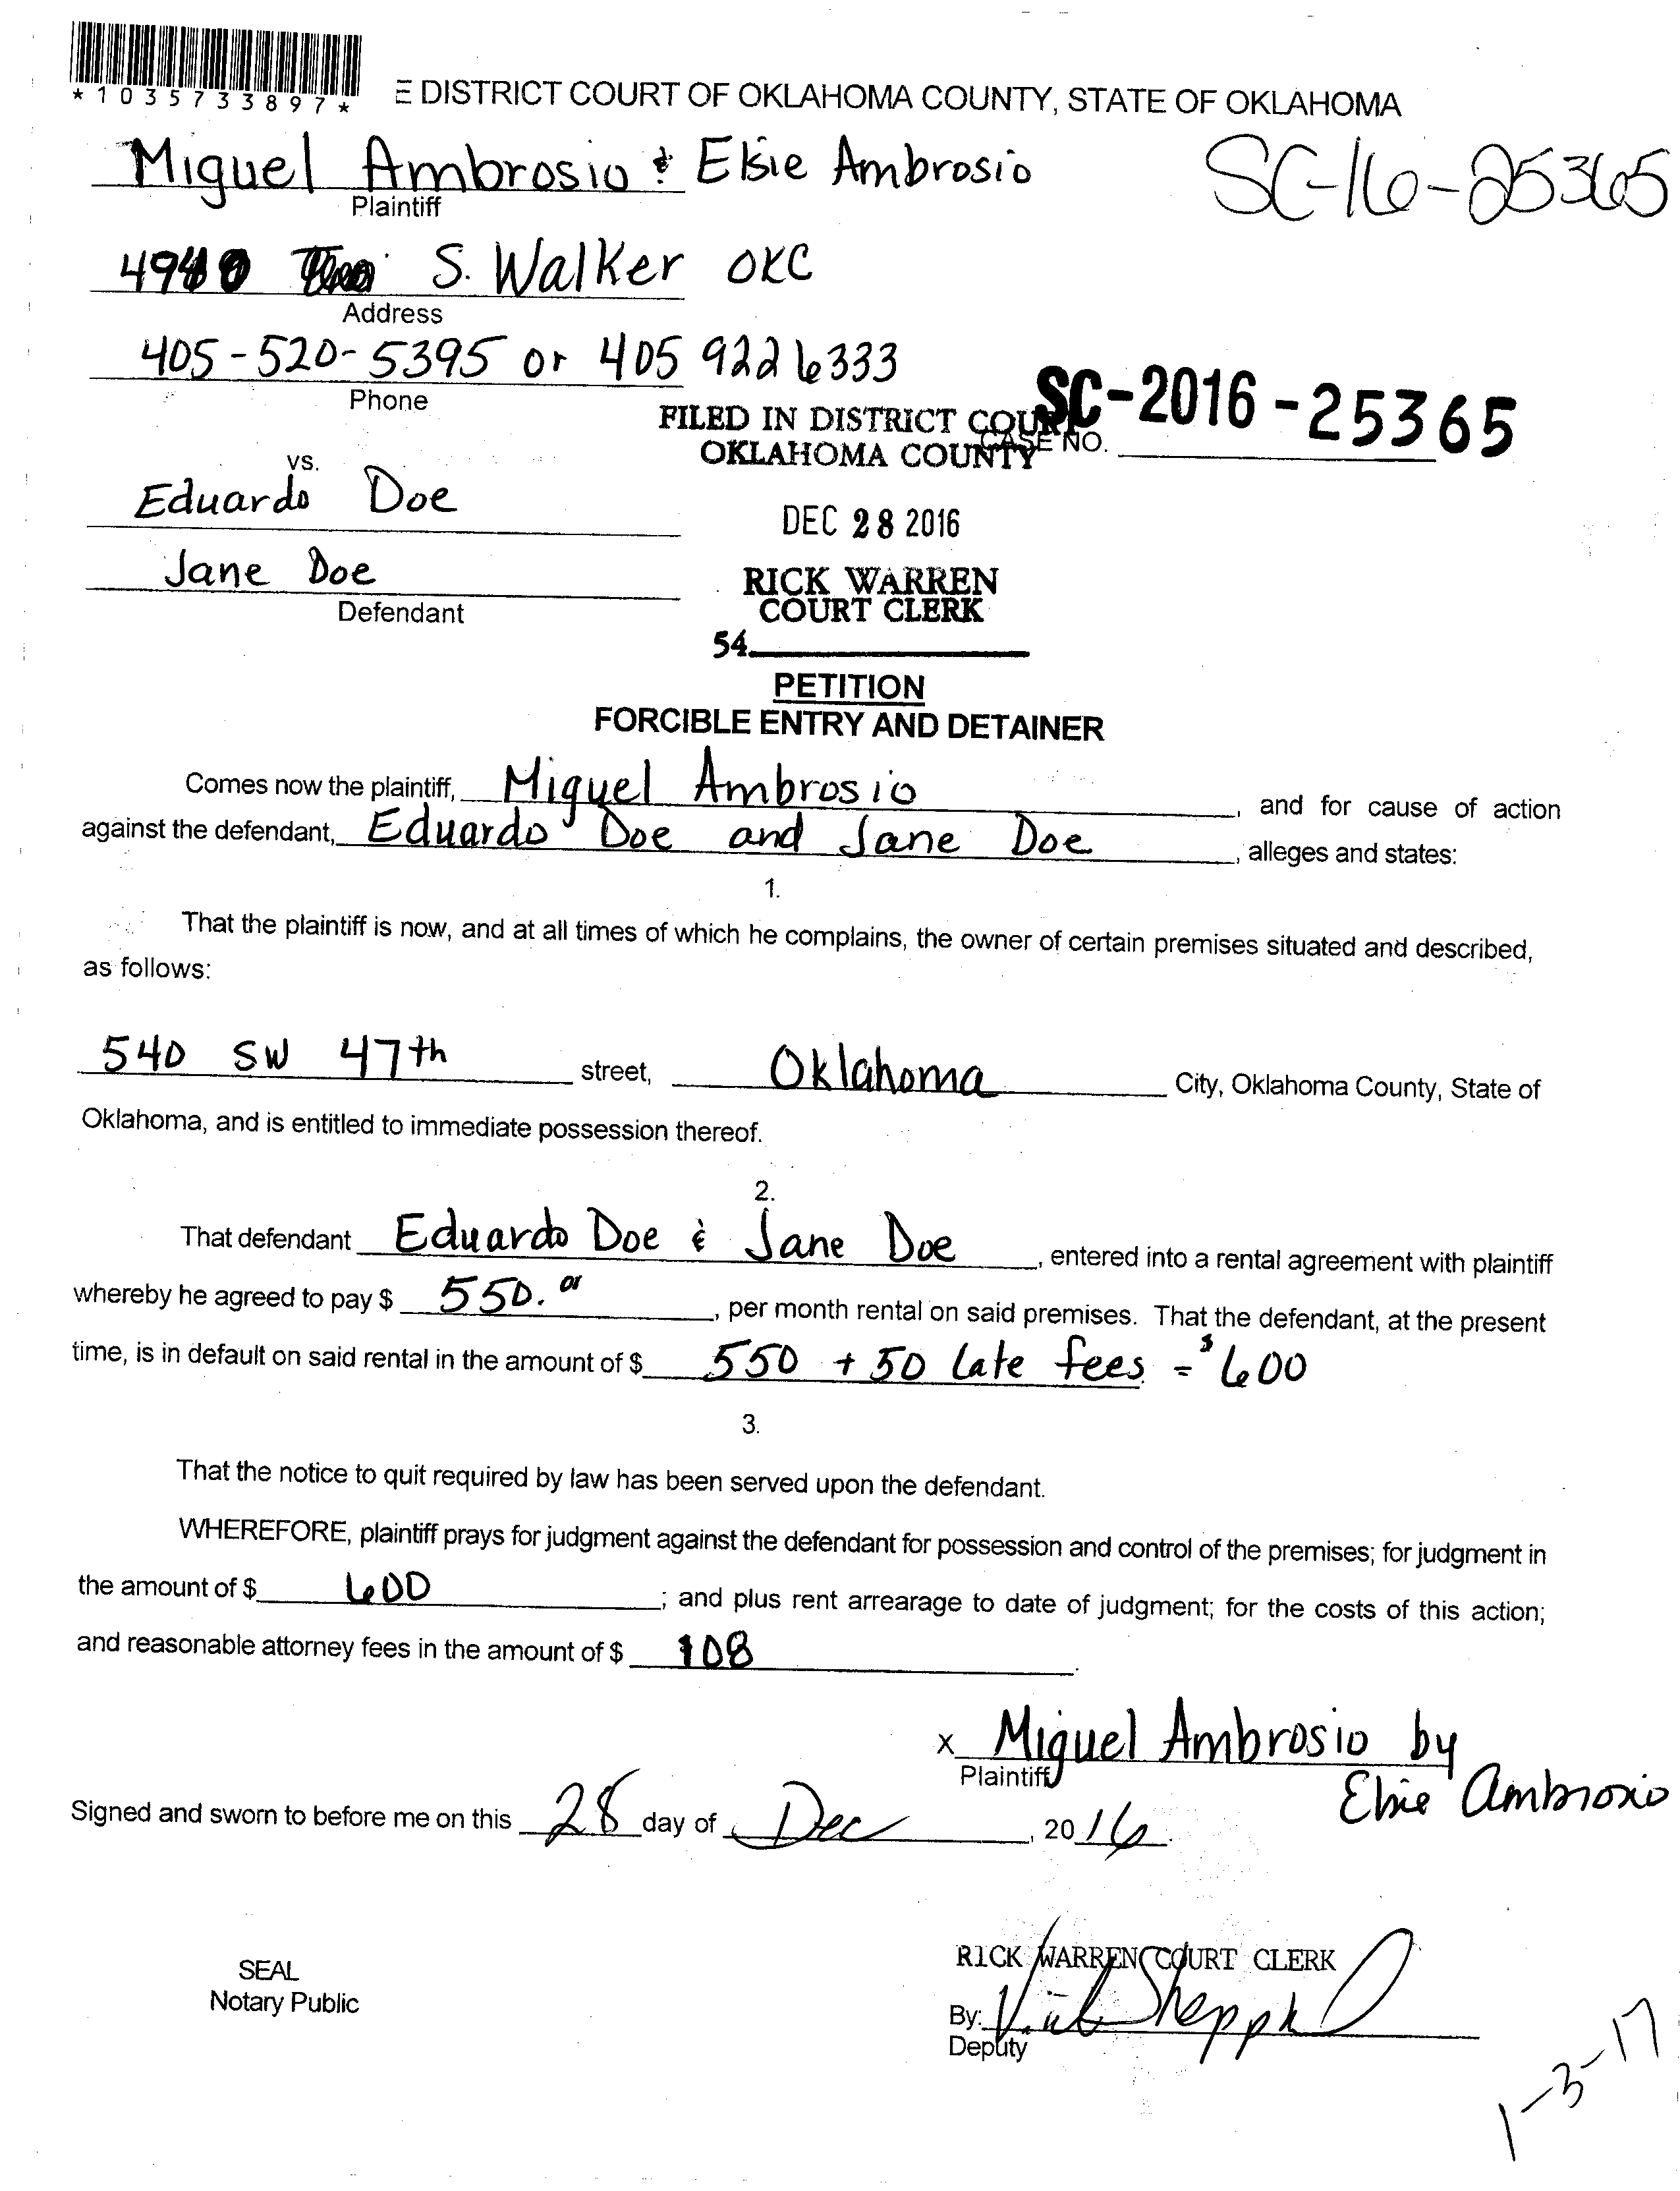 *1035733897*
E DISTRICT COURT OF OKLAHOMA COUNTY, STATE OF OKLAHOMA
Miguel Ambrosio & Elsie Ambrosio
SC-16-25365
Plaintiff
S. Walker OKC
Address
405-520-5395 or 405 922 6333
Phone
FILED IN DISTRICT COURT
OKLAHOMA COUNTY
SC-2016-25365
CASE NO.
vs.
Eduardo Doe
DEC 28 2016
Jane Doe
Defendant
RICK WARREN
COURT CLERK
54
PETITION
FORCIBLE ENTRY AND DETAINER
Comes now the plaintiff, Miguel Ambrosio, and for cause of action
against the defendant, Eduardo Doe and Jane Doe, alleges and states:
1.
That the plaintiff is now, and at all times of which he complains, the owner of certain premises situated and described,
as follows:
540 SW 47th street, Oklahoma City, Oklahoma County, State of
Oklahoma, and is entitled to immediate possession thereof.
2.
That defendant Eduardo Doe & Jane Doe, entered into a rental agreement with plaintiff
whereby he agreed to pay $ 550. , per month rental on said premises. That the defendant, at the present
time, is in default on said rental in the amount of $ 550 + 50 late fees = $600
3.
That the notice to quit required by law has been served upon the defendant.
WHEREFORE, plaintiff prays for judgment against the defendant for possession and control of the premises; for judgment in
the amount of $ 600 ; and plus rent arrearage to date of judgment; for the costs of this action;
and reasonable attorney fees in the amount of $ 108.
x Miguel Ambrosio by
Plaintiff
Elsie Ambrosio
Signed and sworn to before me on this 28 day of Dec, 2016.
SEAL
Notary Public
RICK WARREN COURT CLERK
By:
Deputy
1-3-17